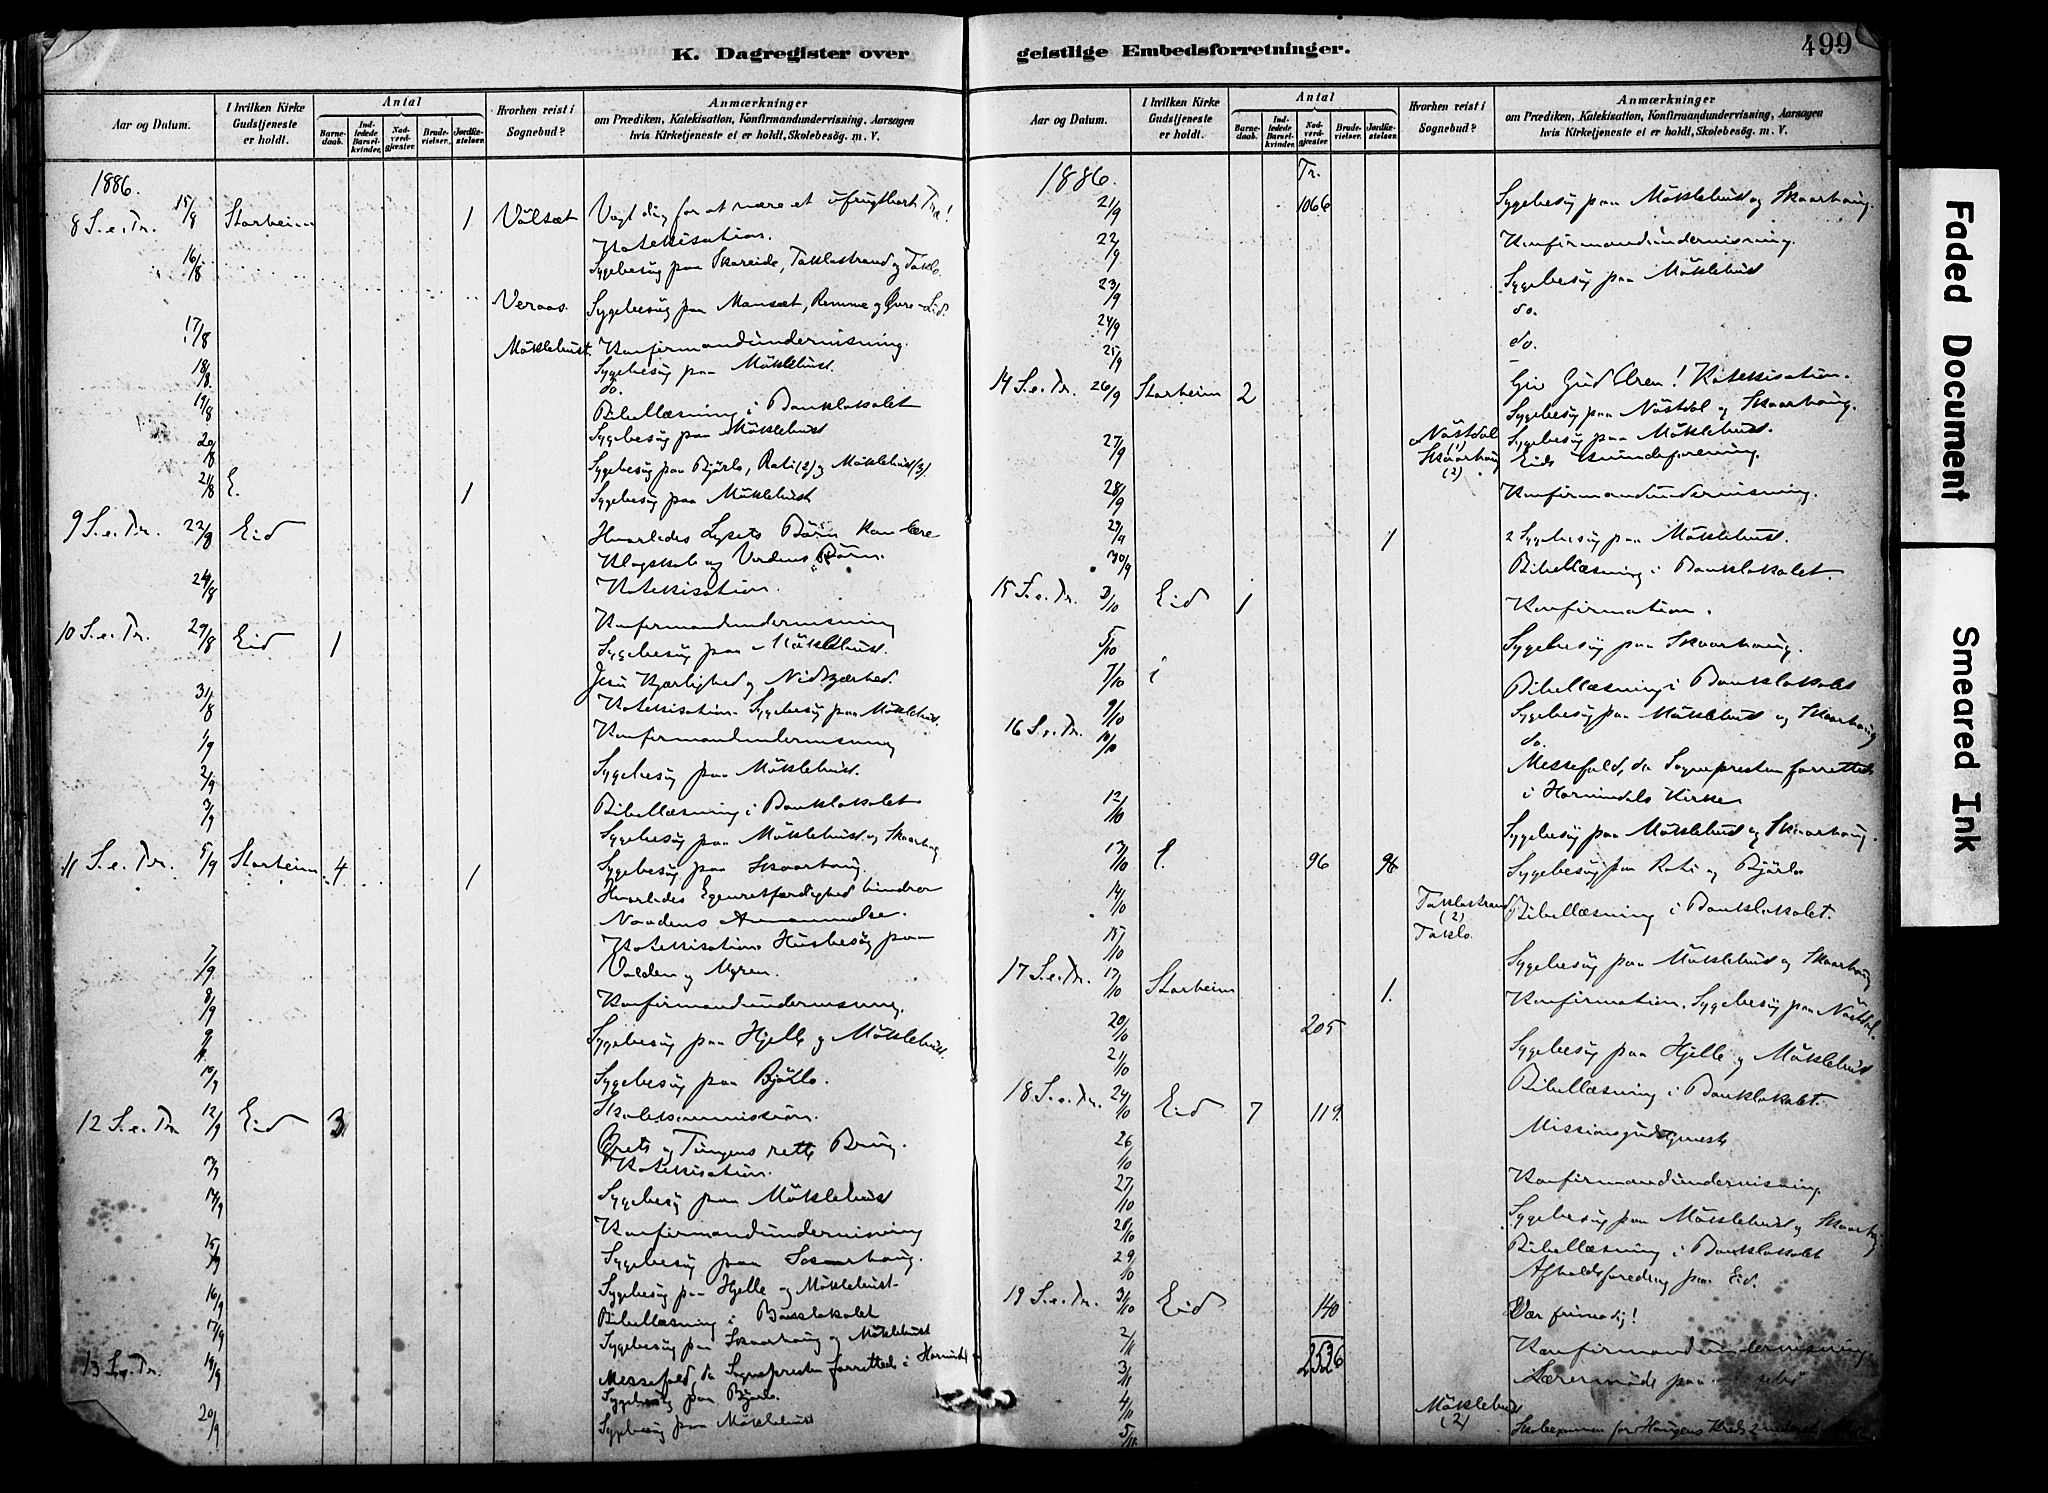 K. Dagregister over
Aar og Datum.
I hvilken Kirke Gudstjeneste er holdt.
Antal
Barne-daab.
Ind-ledede Barsel-kvinder.
Nad-verd-gjæster.
Brude-vielser.
Jordfæ-stelser.
Hvorhen reist i Sognebud?
Anmærkninger
om Prædiken, Katekisation, Konfirmandundervisning, Aarsagen
hvis Kirketjeneste ei er holdt, Skolebesøg. m. V.
1886.
8 S. e. Tr. 15/8 Starheim 1 Vølsæt Vogt dig for at være et ufrugtbart Træ!
Katekisation.
16/8 Sygebesøg paa Skareide, Taklostrand og Taklo.
Veraas. Sygebesøg paa Mansæt, Remme og Øvre-Eid.
17/8 Møklebust. Konfirmandundervisning.
18/8 Sygebesøg paa Møklebust.
do.
19/8 Bibellæsning i Banklokalet
Sygebesøg paa Møklebust
20/8 Sygebesøg paa Bjørlo, Roti (2) og Møklebust (3).
21/8 E. 1 Sygebesøg paa Møklebust
9 S. e. Tr. 22/8 Eid Hvorledes Lysets Børn kan lære
Klogskab og Verdens Børn.
24/8 Katekisation.
Konfirmandundervisning
10 S. e. Tr. 29/8 Eid 1 Sygebesøg paa Møklebust.
Jesu Kjærlighed og Nidkjærhed.
31/8 Katekisation. Sygebesøg paa Møklebust.
1/9 Konfirmandundervisning
2/9 Sygebesøg paa Møklebust.
3/9 Bibellæsning i Banklokalet
Sygebesøg paa Møklebust og Skaarhaug
11 S. e. Tr. 5/9 Starheim 4 1 Sygebesøg paa Skaarhaug.
Hvorledes Egenretfærdighed hindrer
Naadens Annammelse.
Katekisation. Husbesøg paa
7/9 Valden og Myren.
8/9 Konfirmandundervisning.
9/9 Sygebesøg paa Hjelle og Møklebust.
10/9 Sygebesøg paa Bjørlo.
12 S. e. Tr 12/9 Eid 3 Skolekommission.
Ørets og Tungens rette Brug.
13/9 Katekisation.
14/9 Sygebesøg paa Møklebust
Konfirmandundervisning
15/9 Sygebesøg paa Skaarhaug.
16/9 Sygebesøg paa Hjelle og Møklebust
Bibellæsning i Banklokalet
17/9 Sygebesøg paa Skaarhaug og Møklebust
13 S. e. Tr. 19/9 Messefald, da Sognepresten forrettede i Hornindal
Sygebesøg paa Bjørlo.
20/9 Sygebesøg paa Møklebust
geistlige Embedsforretninger.
499
Aar og Datum.
I hvilken Kirke Gudstjeneste er holdt.
Antal
Barne-daab.
Ind-ledede Barsel-kvinder.
Nad-verd-gjæster.
Brude-vielser.
Jordfæ-stelser.
Hvorhen reist i Sognebud?
Anmærkninger
om Prædiken, Katekisation, Konfirmandundervisning, Aarsagen
hvis Kirketjeneste ei er holdt, Skolebesøg. m. V.
1886. Tr.
21/9 1066 Sygebesøg paa Møklebust og Skaarhaug.
22/9 Konfirmandundervisning.
Sygebesøg paa Møklebust
23/9 do.
24/9 do.
25/9
14 S. e. Tr. 26/9 Starheim 2 Giv Gud Æren! Katekisation.
Sygebesøg paa Nøstdal og Skaarhaug.
27/9 Nøstdal (1) Skaarhaug (2) Sygebesøg paa Møklebust.
Eids Kvindeforening.
28/9 Konfirmandundervisning.
29/9 1 2 Sygebesøg paa Møklebust.
30/9 Bibellæsning i Banklokalet.
15 S. e. Tr. 3/10 Eid 1 Konfirmation.
5/10 Sygebesøg paa Skaarhaug.
7/10 Bibellæsning i Banklokalet
9/10 Sygebesøg paa Møklebust og Skaarhaug
16 S. e. Tr. 10/10 do.
Messefald, da Sognepresten forrettede
i Hornindals Kirke
12/10 Sygebesøg paa Møklebust og Skaarhaug.
13/10 E. 96 96 Sygebesøg paa Roti og Bjørlo
14/10 Taklostrand (2) Taklo. Bibellæsning i Banklokalet.
15/10 Sygebesøg paa Møklebust og Skaarhaug
17 S. e. Tr. 17/10 Starheim 1. Konfirmation. Sygebesøg paa Nøstdal.
20/10 205 Sygebesøg paa Hjelle og Møklebust
21/10 Bibellæsning i Banklokalet.
18 S. e. Tr. 24/10 Eid 7 119. Missionsgudstjeneste
26/10 Konfirmandundervisning.
27/10 Sygebesøg paa Møklebust og Skaarhaug
28/10 Bibellæsning i Banklokalet
29/10 Afholdsforedrag paa Eid.
19 S. e. Tr. 31/10 Eid 140 Vær frimodig!
2/11 2526 Konfirmandundervisning.
3/11 Lærermøde paa
4/11 Møklebust (2)
5/11 Skoleexamen for Haugens Kreds
Faded Document
Smeared Ink